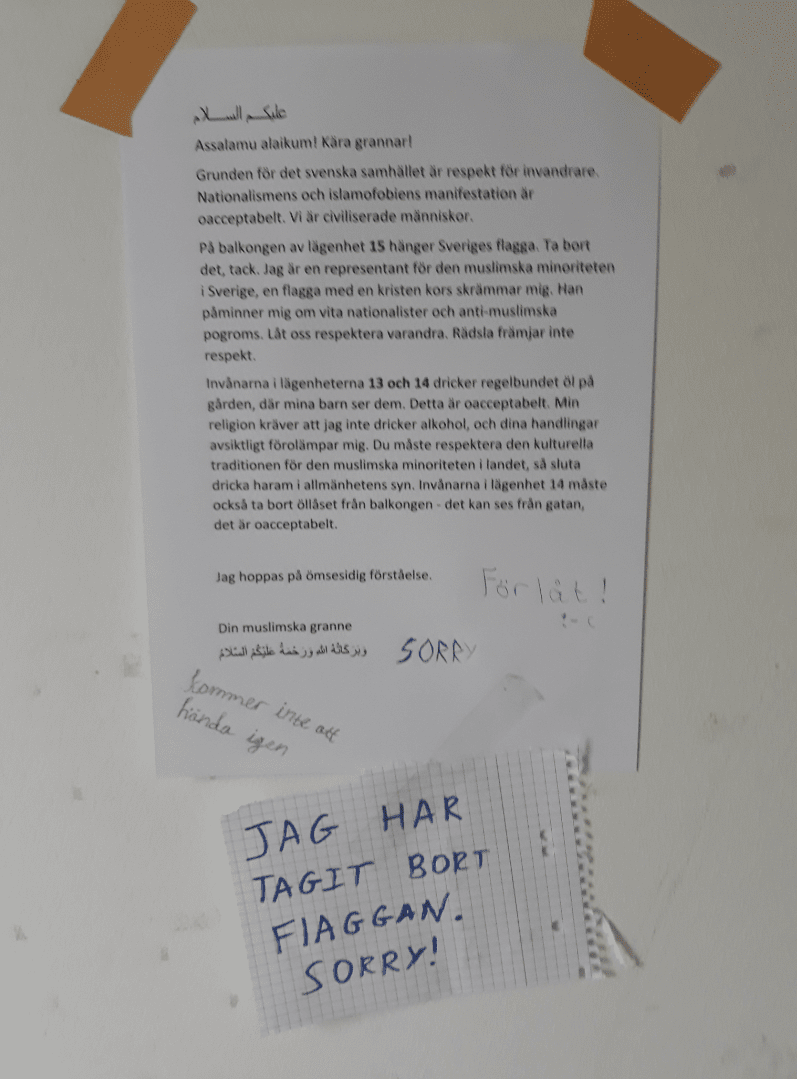 عليكم السلام
Assalamu alaikum! Kära grannar!
Grunden för det svenska samhället är respekt för invandrare.
Nationalismens och islamofobiens manifestation är
oacceptabelt. Vi är civiliserade människor.
På balkongen av lägenhet 15 hänger Sveriges flagga. Ta bort
det, tack. Jag är en representant för den muslimska minoriteten
i Sverige, en flagga med en kristen kors skrämmar mig. Han
påminner mig om vita nationalister och anti-muslimska
pogroms. Låt oss respektera varandra. Rädsla främjar inte
respekt.
Invånarna i lägenheterna 13 och 14 dricker regelbundet öl på
gården, där mina barn ser dem. Detta är oacceptabelt. Min
religion kräver att jag inte dricker alkohol, och dina handlingar
avsiktligt förolämpar mig. Du måste respektera den kulturella
traditionen för den muslimska minoriteten i landet, så sluta
dricka haram i allmänhetens syn. Invånarna i lägenhet 14 måste
också ta bort öllåset från balkongen - det kan ses från gatan,
det är oacceptabelt.
Jag hoppas på ömsesidig förståelse.
Förlåt!
:-(
Din muslimska granne
وَبَرَكَاتُهُ الله وَرَحْمَةُ عَلَيْكُمُ السَّلَامُ
SORRY
kommer inte att
hända igen
JAG HAR
TAGIT BORT
FlAGGAN.
SORRY!